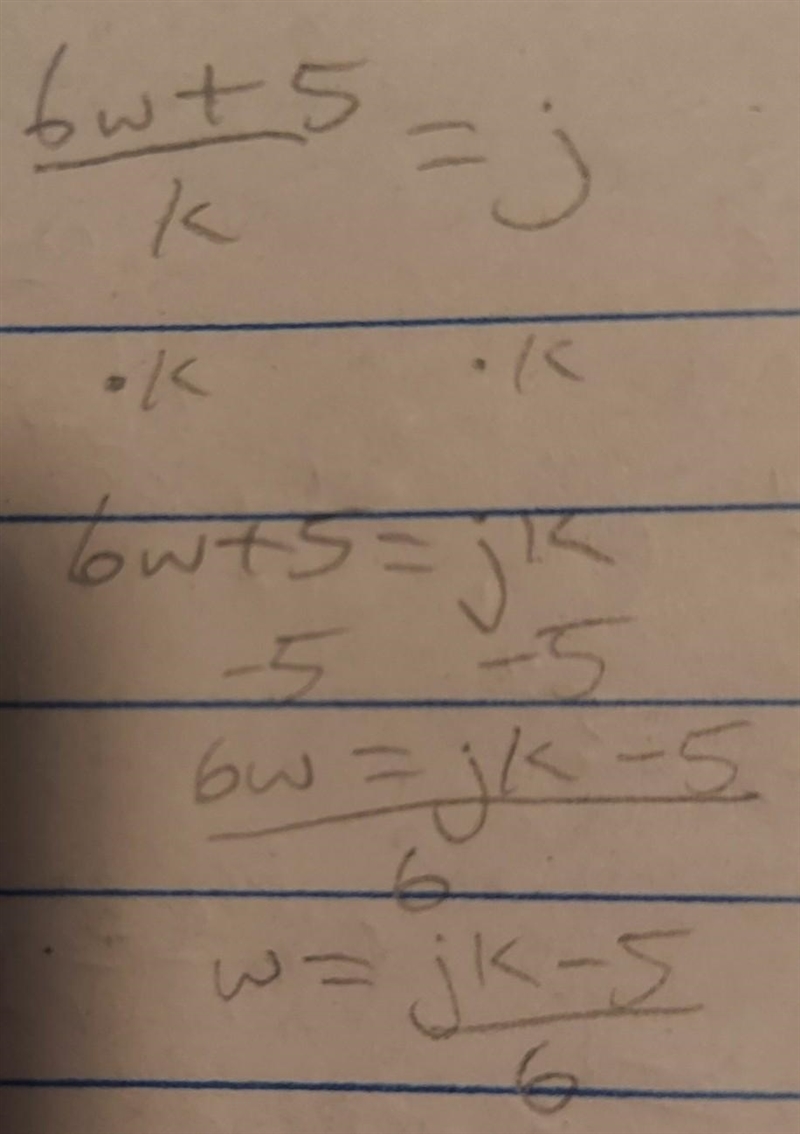 6w+5
k
=j
·k ·k
6w+5=jk
-5 -5
6w=jk-5
6
w=jk-5
6